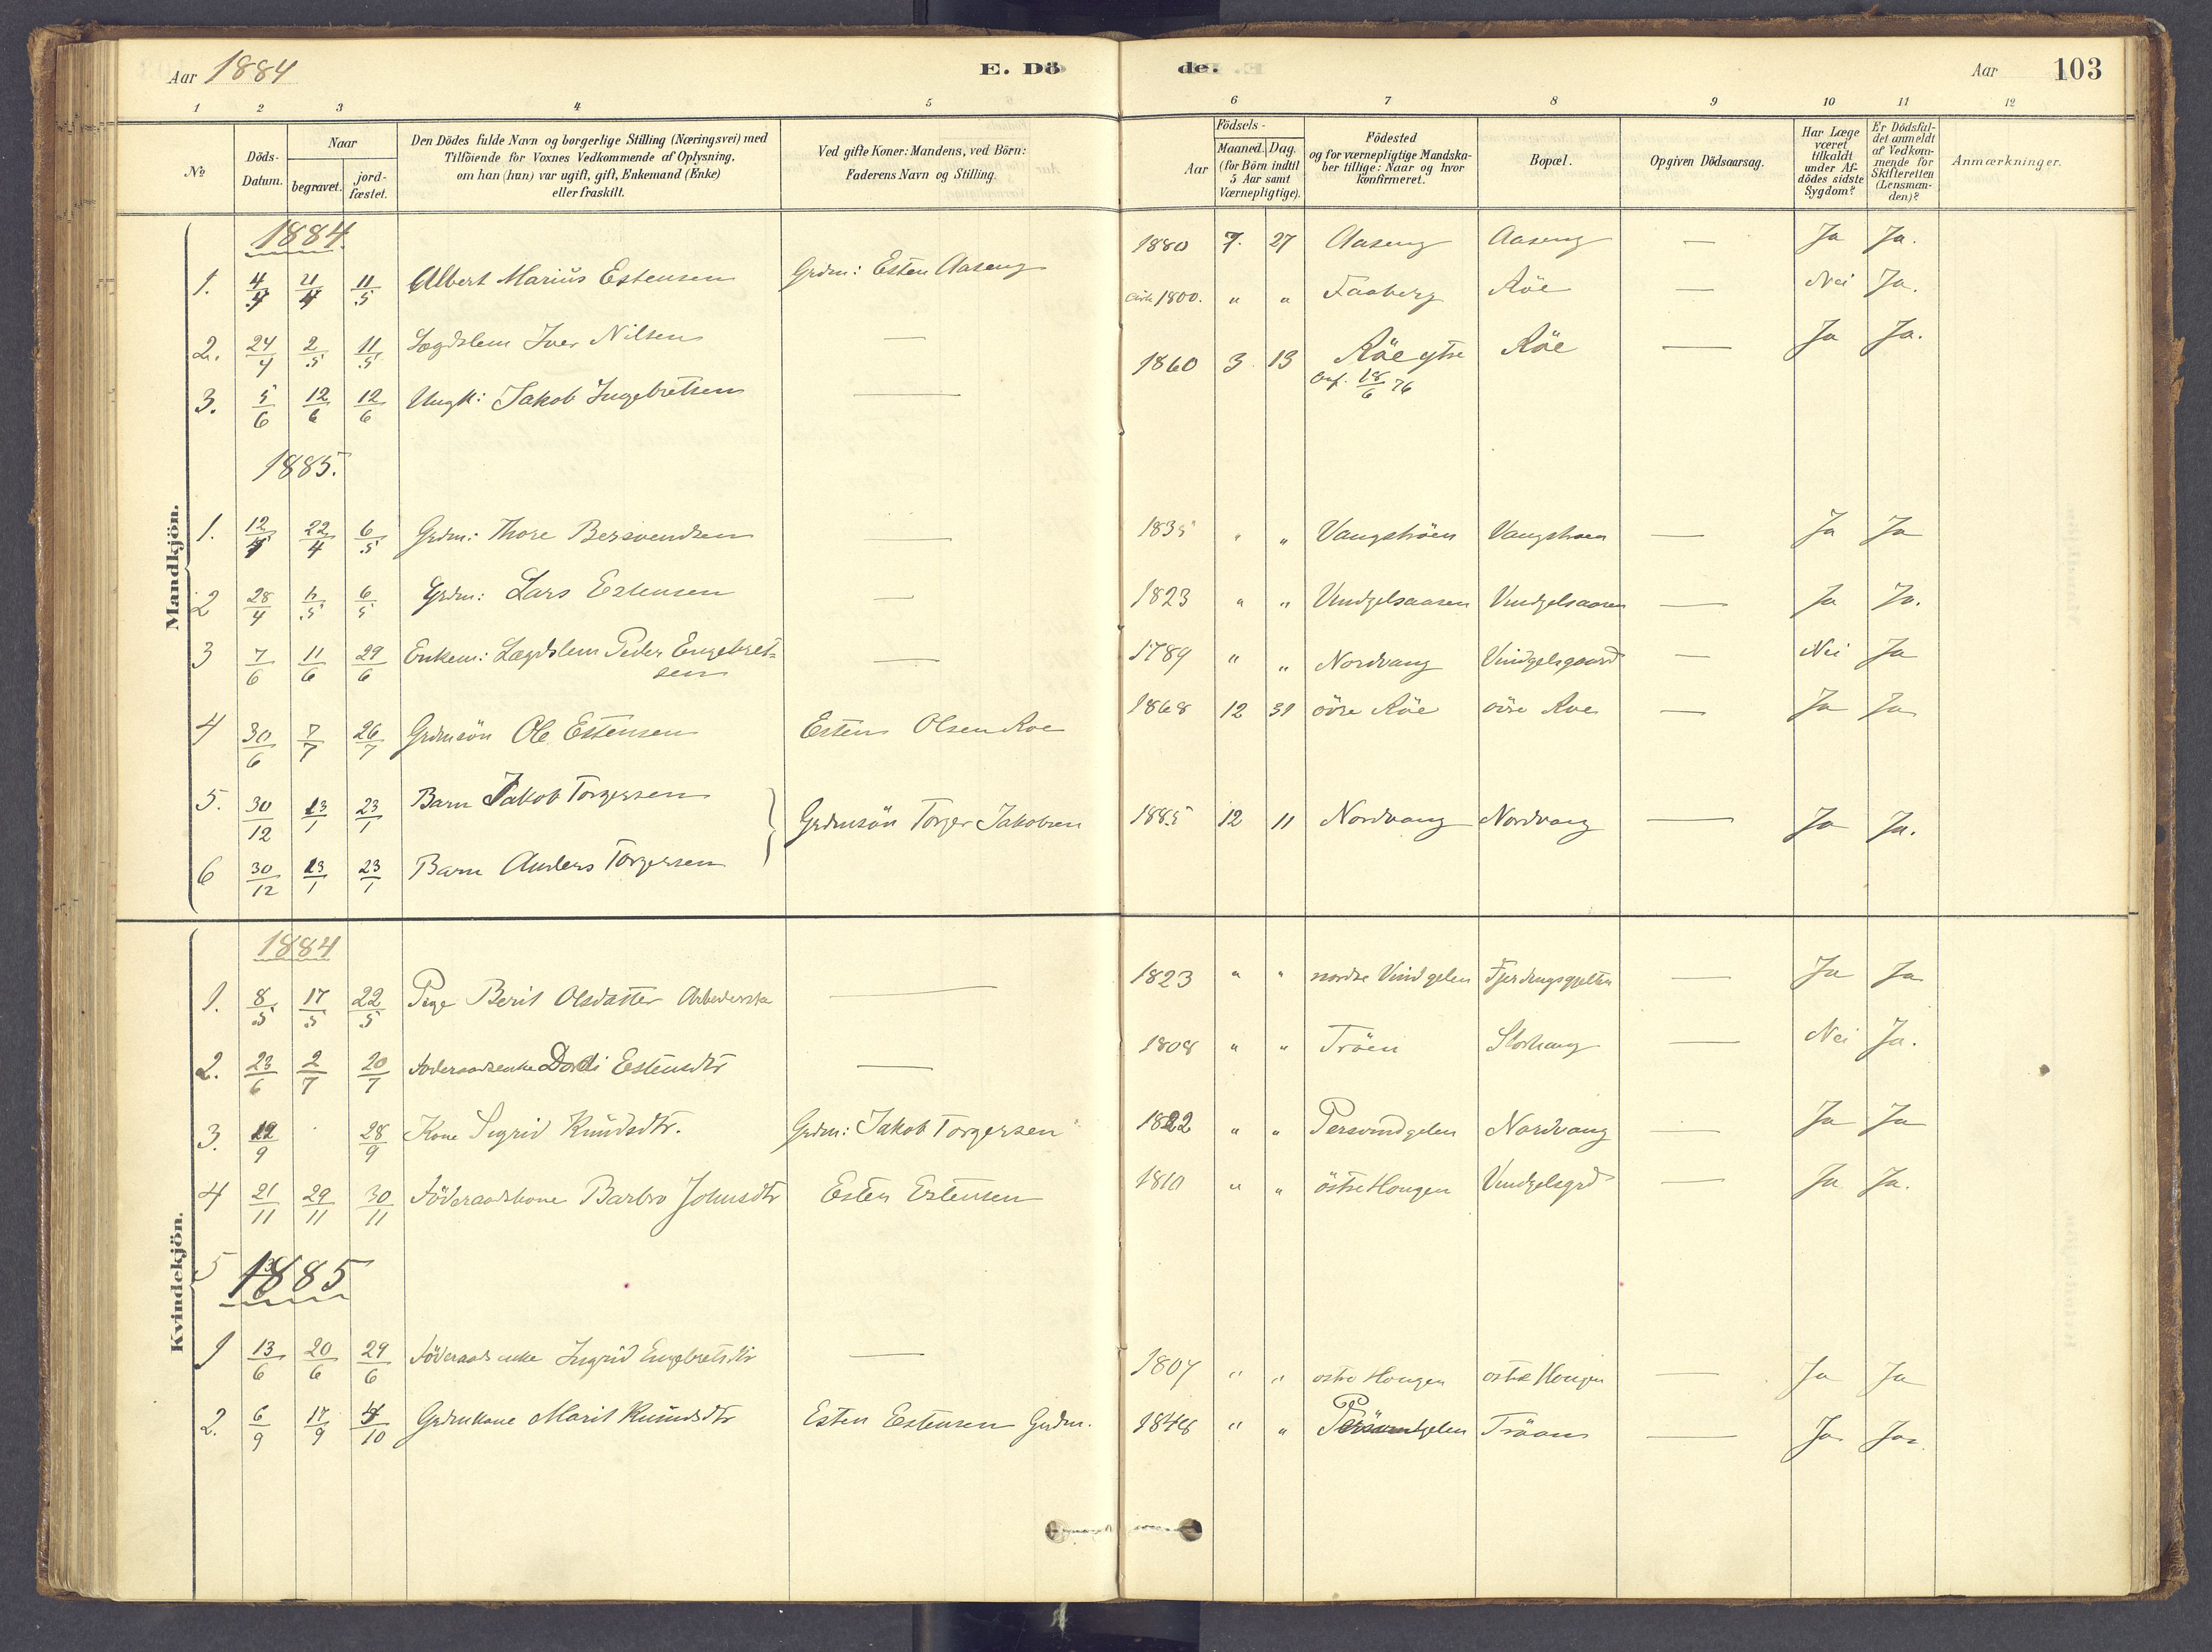 Aar 1884
E. Dö
de.
Aar 103
1 2 3 4 5 6 7 8 9 10 11 12
No
Döds-Datum.
Naar
begravet.
jord-fæstet.
Den Dödes fulde Navn og borgerlige Stilling (Næringsvei) med
Tilföiende for Voxnes Vedkommende af Oplysning,
om han (hun) var ugift, gift, Enkemand (Enke)
eller fraskilt.
Ved gifte Koner: Mandens, ved Börn:
Faderens Navn og Stilling.
Födsels-
Aar
Maaned. Dag.
(for Börn indtil
5 Aar samt
Værnepligtige).
Födested
og for værnepligtige Mandska-
ber tillige: Naar og hvor
konfirmeret.
Bopæl.
Opgiven Dödsaarsag.
Har Læge
været
tilkaldt
under Af-
dödes sidste
Sygdom?
Er Dödsfal-
det anmeldt
af Vedkom-
mende for
Skifteretten
(Lensman-
den)?
Anmærkninger.
Mandkjön.
1884
1. 4/4 11/5 Albert Marius Estensen Grdm: Esten Aaseng 1880 7. 27 Aaseng Aaseng — Ja Ja.
2. 24/4 2/5 11/5 Lægdslem Iver Nilsen — 1800. " " Faaberg Röe — Nei Ja.
3. 5/6 12/6 12/6 Ungk: Jakob Ingebretsen — 1860 3 13 Röe ytre Röe — Ja Ja.
18/6 76
1885.
1. 12/4 22/4 6/5 Grdm: Thore Bersvendsen — 1835 " " Vangshöen Vangshoen — Ja Ja
2 28/4 6/5 6/5 Grdm: Lars Estensen — 1823 " " Vindgelsaasen Vindgelsaasen — Ja Ja.
3 7/6 11/6 29/6 Enkem: Lægdslem Peder Engebret=
sen — 1789 " " Nordvang Vindgelsgaard — Nei Ja
4 30/6 7/7 26/7 Grdmsön Ole Estensen Esten Olsen Roe 1868 12 31 övre Röe övre Roe — Ja Ja
5. 30/12 13/1 23/1 Barn Jakob Torgersen Grdmsön Torger Jakobsen 1885 12 11 Nordvang Nordvang — Ja Ja.
6 30/12 13/1 23/1 Barn Anders Torgersen
Kvindekjön.
1884
1. 8/5 17/5 22/5 Pige Berit Olsdatter Arbeiderske — 1823 " " nordre Vindgelen — Ja Ja
2. 23/6 2/7 20/7 Föderaadsenke Dordi Estensdtr — 1808 " " Tröen Storhaug — Nei Ja.
3. 19/9 28/9 Kone Sigrid Knudsdtr. Grdm: Jakob Torgersen 1822 " " Persvindgelen Nordvang — Ja Ja
4 21/11 29/11 30/11 Föderaadskone Barbro Johnsdtr Esten Estensen 1810 " " östre Hougen Vindgelsgrd — Ja Ja.
5
1885
1 13/6 20/6 29/6 Föderaads enke Ingrid Engebretsdtr — 1807 " " östre Hougen östre Hougen — Ja Ja
2. 6/9 17/9 4/10 Grdmkone Marit Knudsdtr Esten Estensen Grdm. 1848 " " Tröen — Ja Ja.